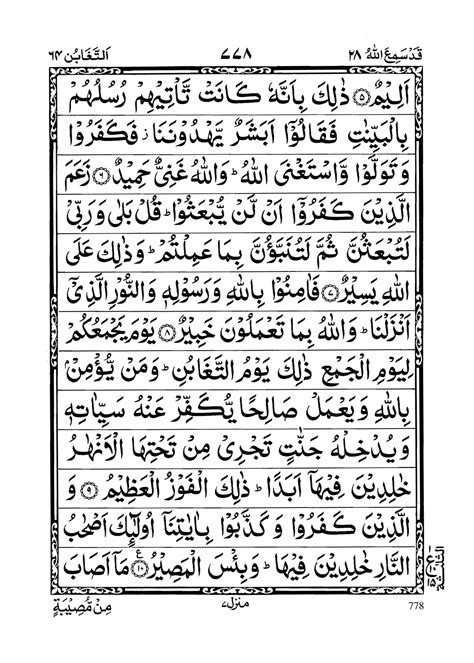 قَدْ سَمِعَ اللّٰهُ ٢٨
٧٧٨
اَلتَّغَابُن ٦٤
اَلِيْمٌ ۝٥ ذٰلِكَ بِاَنَّهٗ كَانَتْ تَّاْتِيْهِمْ رُسُلُهُمْ
بِالْبَيِّنٰتِ فَقَالُوْۤا اَبَشَرٌ يَّهْدُوْنَنَا ز فَكَفَرُوْا
وَتَوَلَّوْا وَّاسْتَغْنَى اللّٰهُ ؕ وَاللّٰهُ غَنِيٌّ حَمِيْدٌ ۝٦ زَعَمَ
الَّذِيْنَ كَفَرُوْۤا اَنْ لَّنْ يُّبْعَثُوْا ؕ قُلْ بَلٰى وَرَبِّيْ
لَتُبْعَثُنَّ ثُمَّ لَتُنَبَّؤُنَّ بِمَا عَمِلْتُمْ ؕ وَذٰلِكَ عَلَى
اللّٰهِ يَسِيْرٌ ۝٧ فَاٰمِنُوْا بِاللّٰهِ وَرَسُوْلِهٖ وَالنُّوْرِ الَّذِيْۤ
اَنْزَلْنَا ؕ وَاللّٰهُ بِمَا تَعْمَلُوْنَ خَبِيْرٌ ۝٨ يَوْمَ يَجْمَعُكُمْ
لِيَوْمِ الْجَمْعِ ذٰلِكَ يَوْمُ التَّغَابُنِ ؕ وَمَنْ يُّؤْمِنْۢ
بِاللّٰهِ وَيَعْمَلْ صَالِحًا يُّكَفِّرْ عَنْهُ سَيِّاٰتِهٖ
وَيُدْخِلْهُ جَنّٰتٍ تَجْرِيْ مِنْ تَحْتِهَا الْاَنْهٰرُ
خٰلِدِيْنَ فِيْهَاۤ اَبَدًا ؕ ذٰلِكَ الْفَوْزُ الْعَظِيْمُ ۝٩ وَ
الَّذِيْنَ كَفَرُوْا وَكَذَّبُوْا بِاٰيٰتِنَاۤ اُولٰٓئِكَ اَصْحٰبُ
النَّارِ خٰلِدِيْنَ فِيْهَا ؕ وَبِئْسَ الْمَصِيْرُ ۝١٠ مَاۤ اَصَابَ
ع
مِنْ مُّصِيْبَةٍ
منزل ٧
778